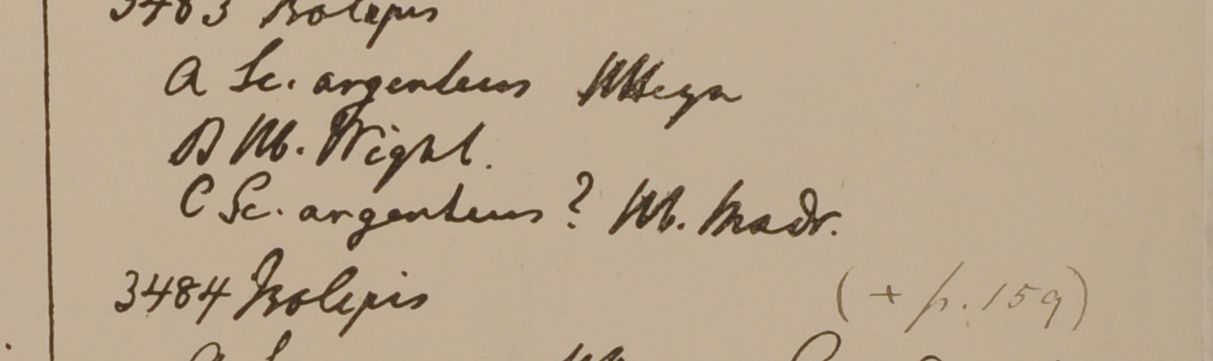 3483 Isolepis
A Sc. argenteus HHeyn
B Hb. Wight.
C Sc. argenteus? Hb. Madr.
3484 Isolepis (+ p. 159)